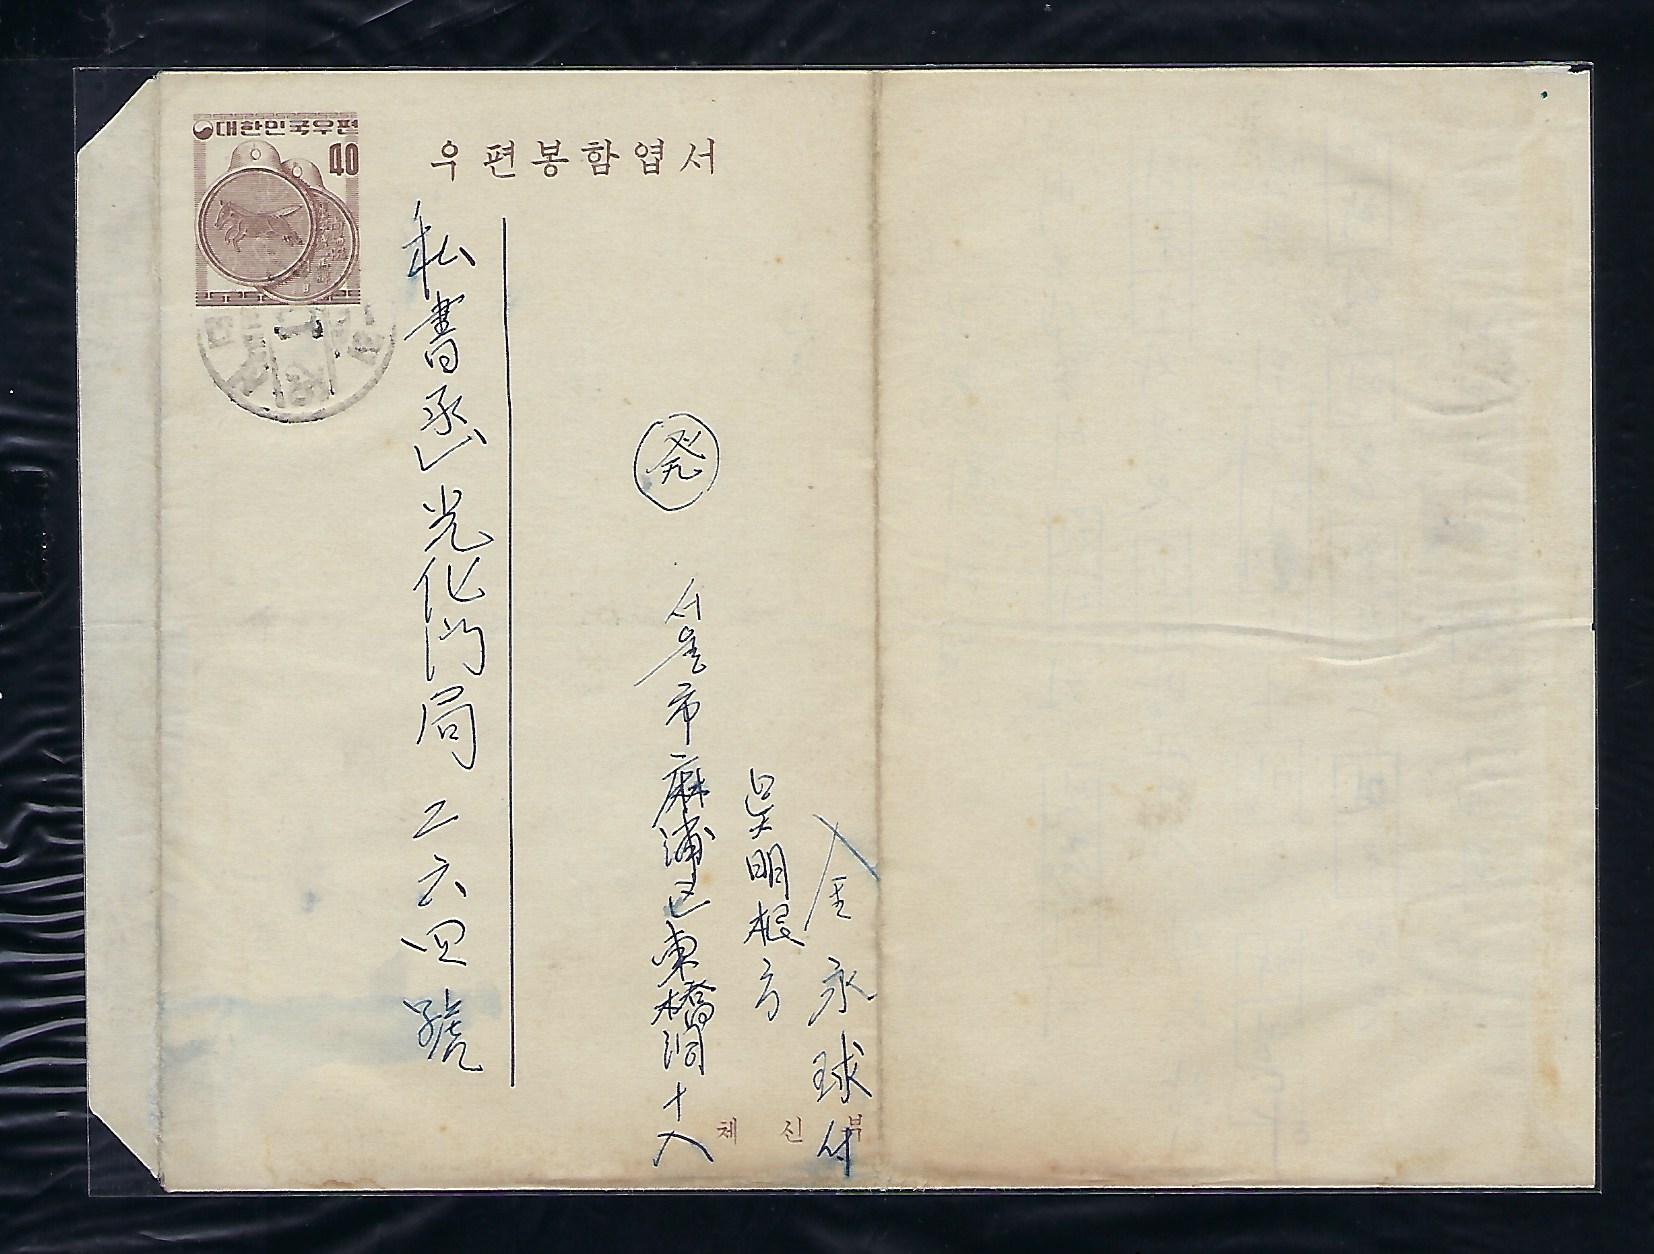 대한민국우편
40
우편봉함엽서
私書函 光化門局 二六四 號
発
서울市 麻浦区 東橋洞 十八
吳明根 方
金永球 付
체신부